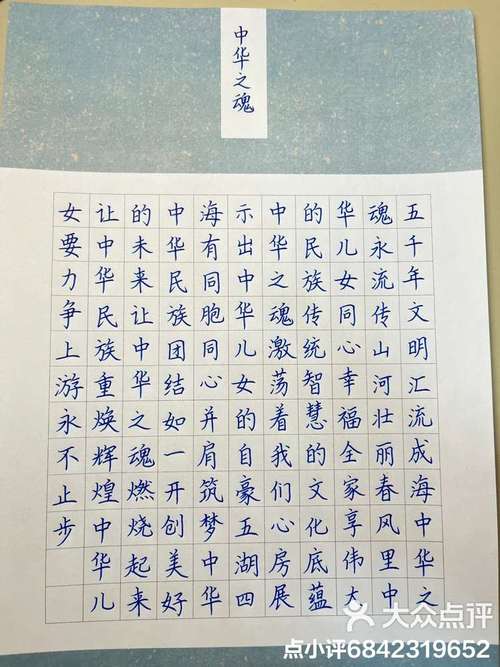 中华之魂
五千年文明汇流成海中华之
魂永流传山河壮丽春风里中
华儿女同心幸福全家享伟大
的民族传统智慧的文化底蕴
中华之魂激荡着我们心房展
示出中华儿女的自豪五湖四
海有同胞同心并肩筑梦中华
中华民族团结如一开创美好
的未来让中华之魂燃烧起来
让中华民族重焕辉煌中华儿
女要力争上游永不止步
大众点评
点小评6842319652